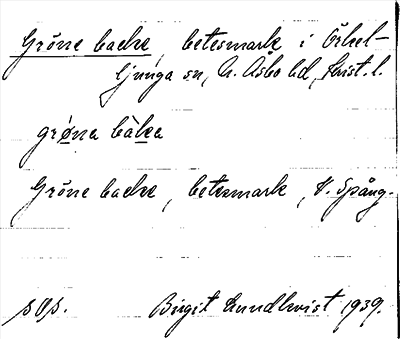 Gröne backe, betesmark i Örkel-
ljunga sn, N. Åsbo hd, Krist. l.
grøna bàka
Gröne backe, betesmark, V. Spång.
sOp. Birgit Lundkvist 1939.